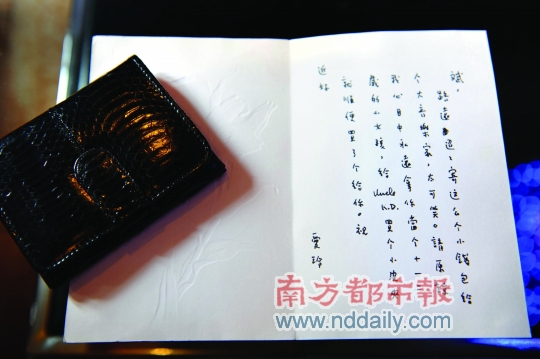 斌,
路遠迢迢,寄这么个小錢包給
个大音樂家,太可笑。請原諒
我心目中永遠拿你當个十一二
歲的小女孩,給 Uncle K.D. 買个小皮夾
就順便買了个給你。祝
近好
愛玲
南方都市報
www.nddaily.com